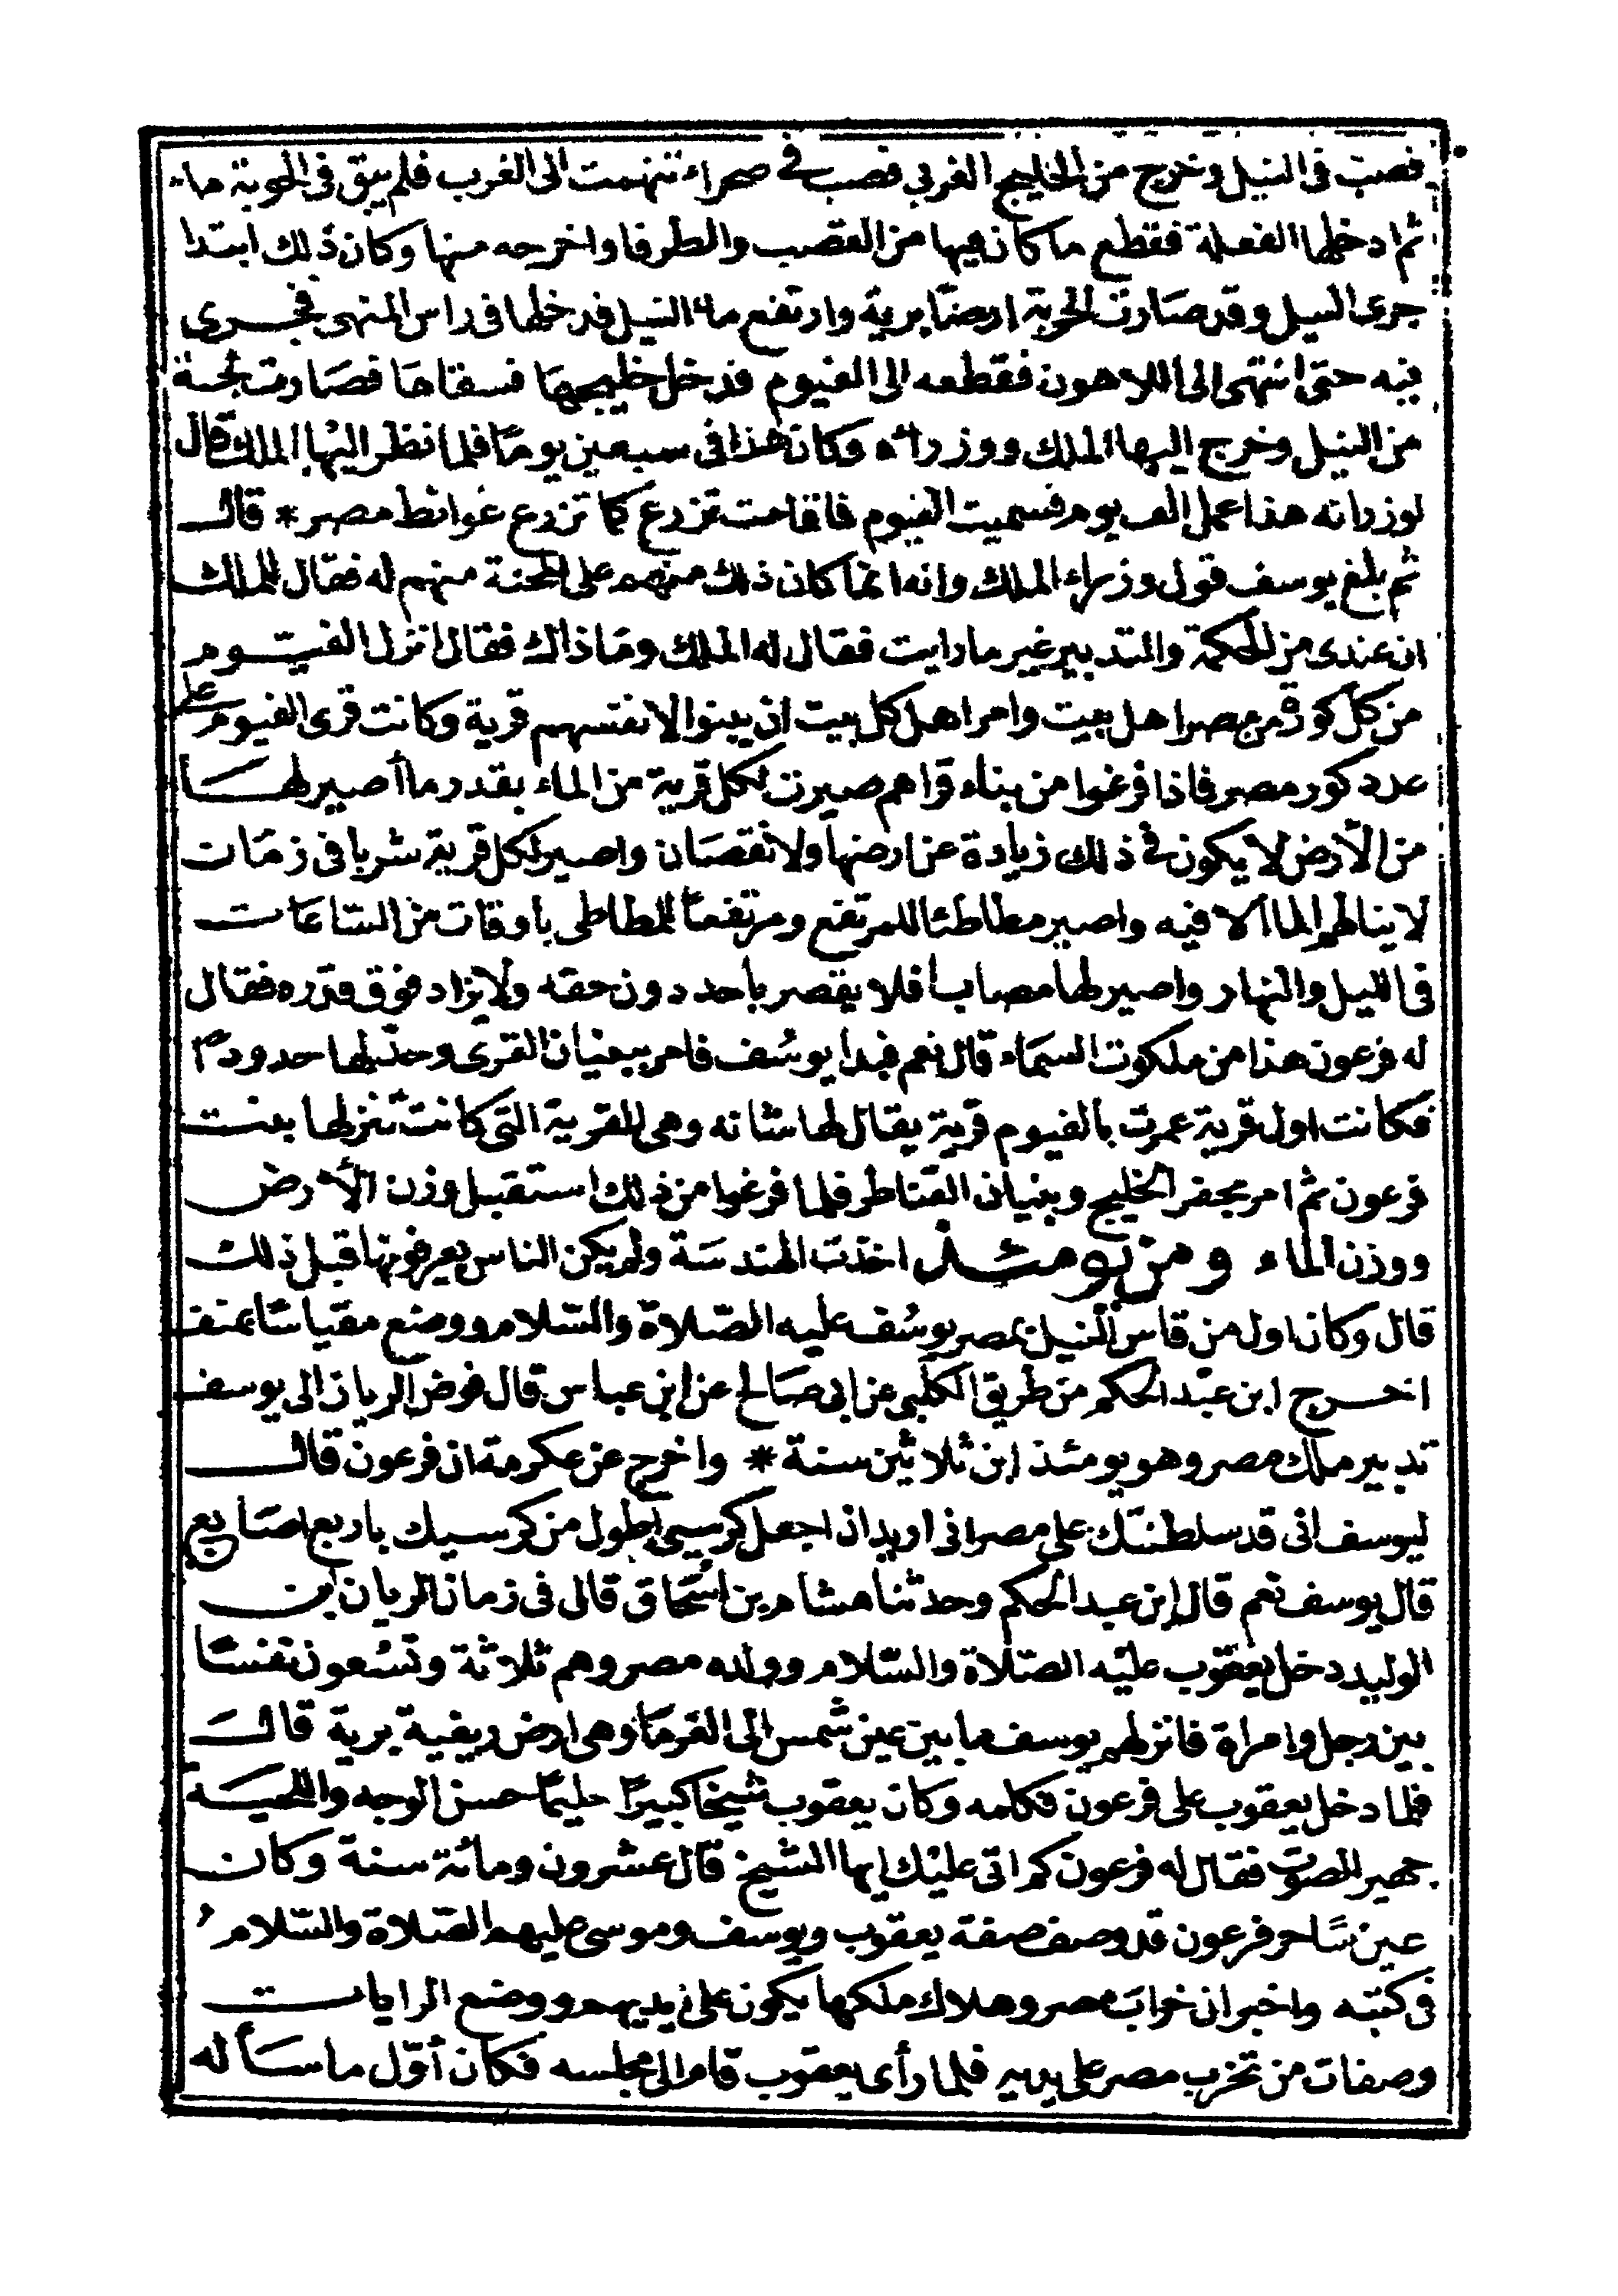 فصب فى النيل وخرج من الخليج الغربي فصب في صحراء تنهمت الى الغرب فلم يبق فى الجوبة ماء
ثم ادخلها الفعلة فقطع ما كان فيها من القصب والطرفا واخرجه منها وكان ذلك ابتدا
جرى النيل وقد صارت الجوبة ارضا برية وارتفع ماء النيل فدخلها فى راس المنهى فجرى
فيه حتى انتهى الى اللاهون فقطعه الى الفيوم فدخل خليجها فسقاها فصارت لجة
من النيل وخرج اليها الملك ووزرائه وكان هذا فى سبعين يوما فلما نظر اليها الملك قال
لوزرائه هذا عمل الف يوم فسميت الفيوم فاقامت تزرع كما تزرع غوائط مصر * قال
ثم بلغ يوسف قول وزراء الملك وانه انما كان ذلك منهم على المحنة منهم له فقال للملك
ان عندى من الحكمة والتدبير غير ما رايت فقال له الملك وما ذاك فقال انزل الفيوم
من كل كورة من مصر اهل بيت وامر اهل كل بيت ان يبنوا لانفسهم قرية وكانت قرى الفيوم على
عدد كور مصر فاذا فرغوا من بناء قراهم صيرت لكل قرية من الماء بقدر ما أصير لها
من الأرض لا يكون في ذلك زيادة عن ارضها ولا نقصان واصير لكل قرية شربا فى زمان
لا ينالهم الماء الا فيه واصير مطاطئا للمرتفع ومرتفعا للمطاطى باوقات من الساعات
فى الليل والنهار واصير لها مصابا فلا يقصر بأحد دون حقه ولا يزاد فوق قدره فقال
له فرعون هذا من ملكوت السماء قال نعم فبدا يوسف فامر ببنيان القرى وحد لها حدودا
فكانت اول قرية عمرت بالفيوم قرية يقال لها شانه وهى القرية التى كانت تنزلها بنت
فرعون ثم امر بحفر الخليج وبنيان القناطر فلما فرغوا من ذلك استقبل وزن الأرض
ووزن الماء ومن يومئذ اخذت الهندسة ولم يكن الناس يعرفونها قبل ذلك
قال وكان اول من قاس النيل بمصر يوسف عليه الصلاة والسلام ووضع مقياسا بمنف
اخرج ابن عبد الحكم من طريق الكلبي عن ابى صالح عن ابن عباس قال فوض الريان الى يوسف
تدبير ملك مصر وهو يومئذ ابن ثلاثين سنة * واخرج عن عكرمة ان فرعون قال
ليوسف انى قد سلطنتك على مصر انى اريد ان اجعل كرسيى اطول من كرسيك باربع اصابع
قال يوسف نعم قال ابن عبد الحكم وحدثنا هشام بن اسحاق قال فى زمان الريان ابن
الوليد دخل يعقوب عليه الصلاة والسلام وولده مصر وهم ثلاثة وتسعون نفسا
بين رجل وامراة فانزلهم يوسف ما بين عين شمس الى الفرما وهى ارض ريفية برية قال
فلما دخل يعقوب على فرعون فكلمه وكان يعقوب شيخا كبيرا حليما حسن الوجه واللحية
جهير الصوت فقال له فرعون كم اتى عليك ايها الشيخ قال عشرون ومائة سنة وكان
عين ساحر فرعون قد وصف صفة يعقوب ويوسف وموسى عليهم الصلاة والسلام
فى كتبه واخبر ان خراب مصر وهلاك ملكها يكون على يديهم ووضع الرايات
وصفات من تخرب مصر على يديه فلما رأى يعقوب قام الى مجلسه فكان أول ما سأله